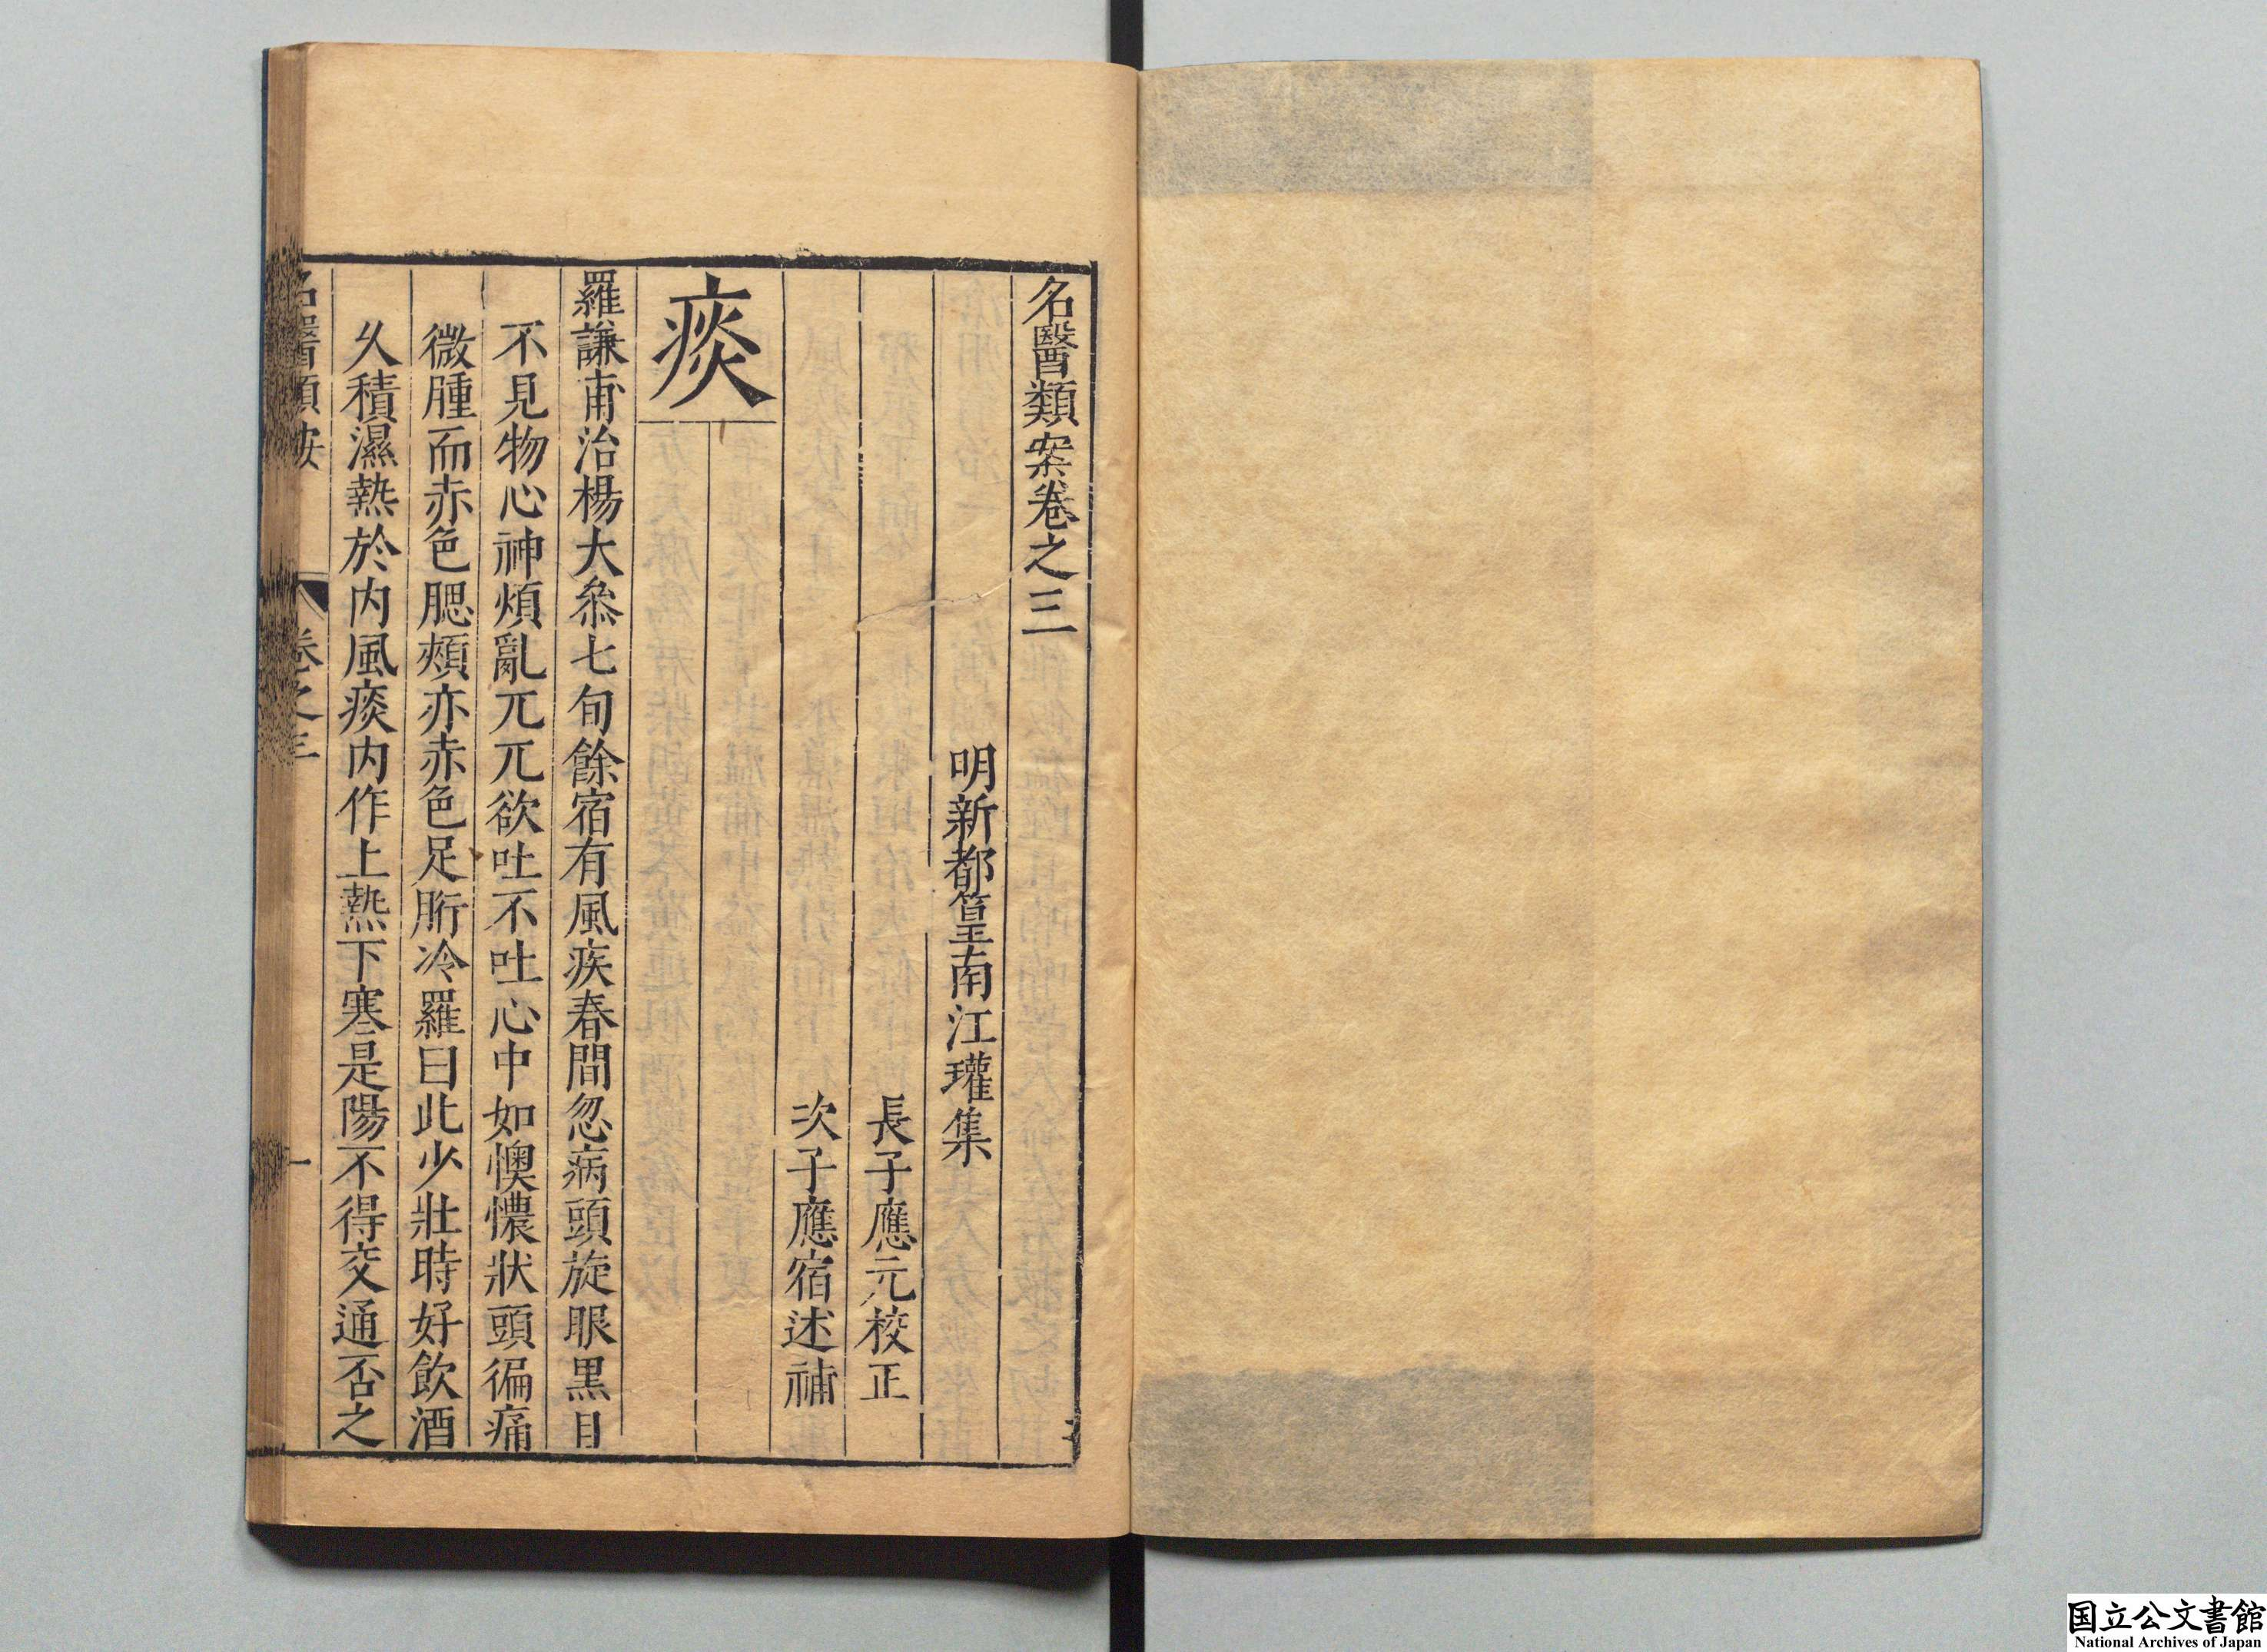 名醫類案卷之三
明新都篁南江瓘集
長子應元校正
次子應宿述補
痰
羅謙甫治楊大叅七旬餘宿有風疾春間忽病頭旋眼黒目
不見物心神煩亂兀兀欲吐不吐心中如懊憹狀頭徧痛
微腫而赤色腮頰亦赤色足胻冷羅曰此少壯時好飲酒
久積濕熱於内風痰内作上熱下寒是陽不得交通否之
名醫類案
卷之三
一
国立公文書館
National Archives of Japan